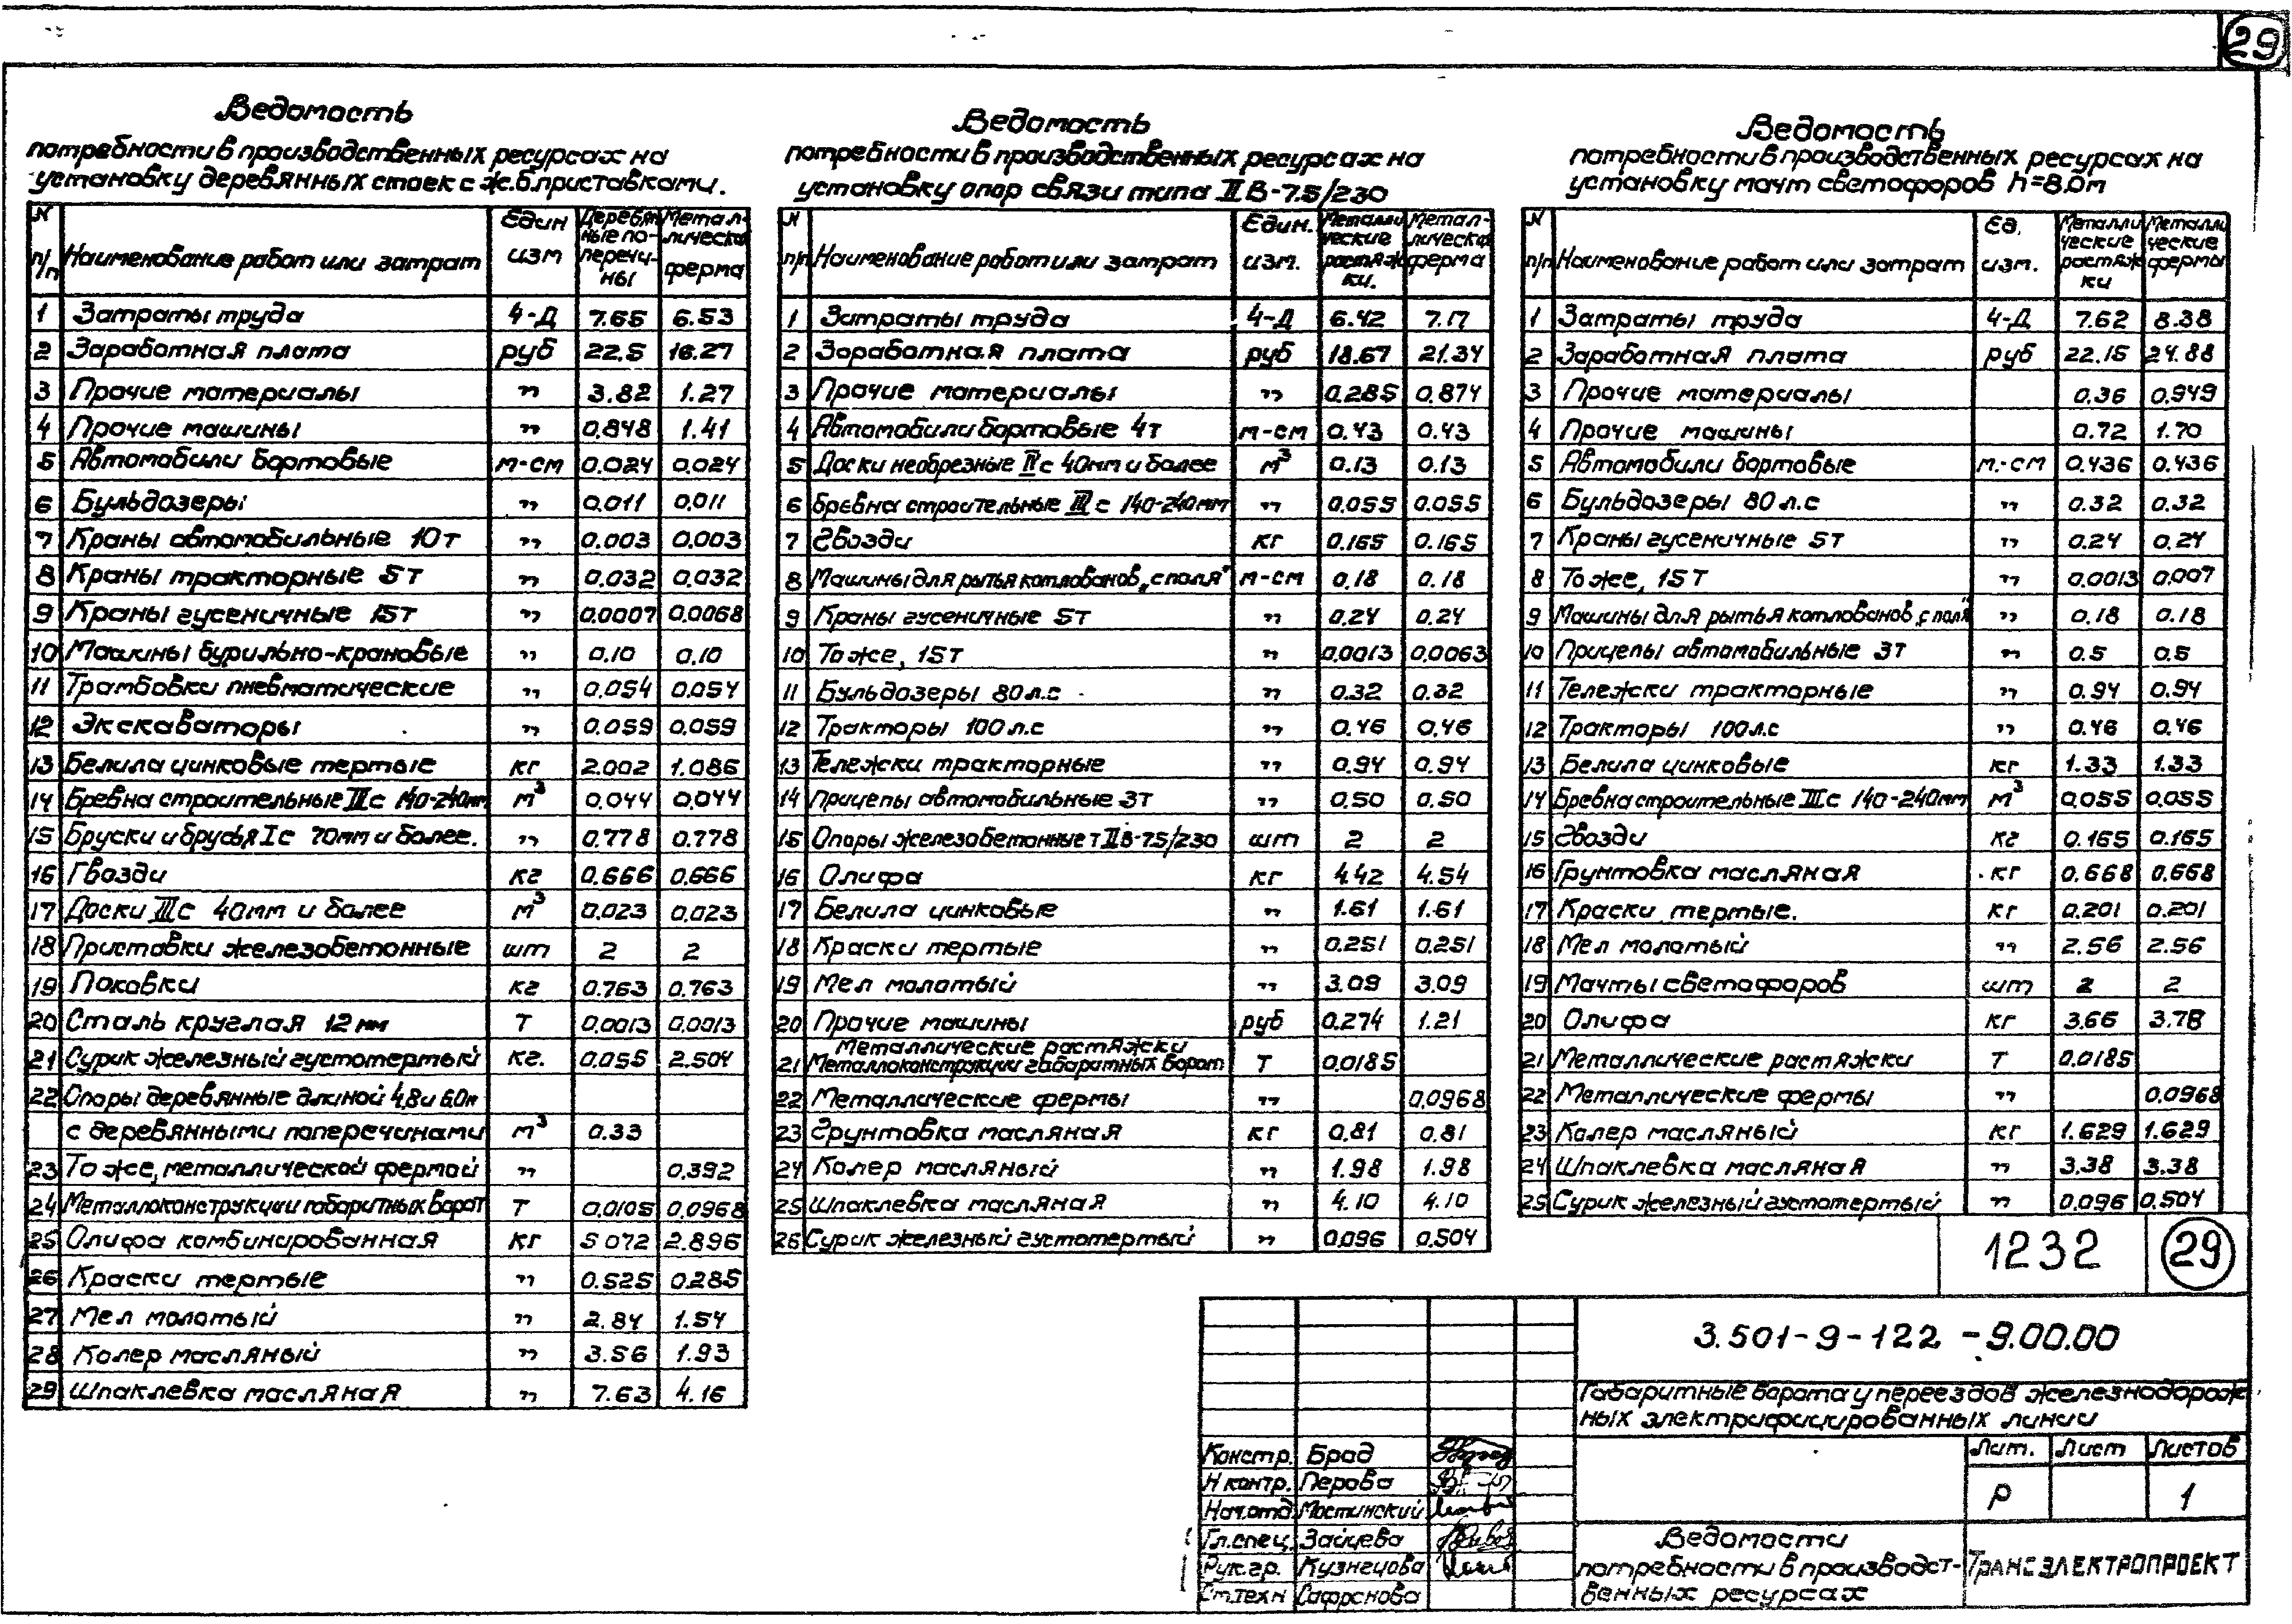 29
Ведомость
потребности в производственных ресурсах на
установку деревянных стоек с ж.б.приставками.
N п/п Наименование работ или затрат Един изм Деревянные поперечины Металлическая ферма
1 Затраты труда ч-д 7.65 6.53
2 Заработная плата руб 22.5 16.27
3 Прочие материалы " 3.82 1.27
4 Прочие машины " 0.848 1.41
5 Автомобили бортовые м-см 0.024 0.024
6 Бульдозеры " 0.011 0.011
7 Краны автомобильные 10т " 0.003 0.003
8 Краны тракторные 5т " 0.032 0.032
9 Краны гусеничные 15т " 0.0007 0.0068
10 Машины бурильно-крановые " 0.10 0.10
11 Трамбовки пневматические " 0.054 0.054
12 Экскаваторы " 0.059 0.059
13 Белила цинковые тертые кг 2.002 1.086
14 Бревна строительные IIIс 140-240мм м3 0.044 0.044
15 Бруски и брусья Iс 70мм и более. " 0.778 0.778
16 Гвозди кг 0.666 0.666
17 Доски IIIс 40мм и более м3 0.023 0.023
18 Приставки железобетонные шт 2 2
19 Поковки кг 0.763 0.763
20 Сталь круглая 12мм т 0.0013 0.0013
21 Сурик железный густотертый кг. 0.055 2.504
22 Опоры деревянные длиной 4,8 и 6.0м
с деревянными поперечинами м3 0.33
23 То же, металлической фермой " 0.392
24 Металлоконструкции габаритных ворот т 0.0105 0.0968
25 Олифа комбинированная кг 5.072 2.896
26 Краски тертые " 0.525 0.285
27 Мел молотый " 2.84 1.54
28 Колер масляный " 3.56 1.93
29 Шпаклевка масляная " 7.63 4.16
Ведомость
потребности в производственных ресурсах на
установку опор связи типа II В-7.5/230
N п/п Наименование работ или затрат Един. изм. Металлические растяжки. Металлическая ферма
1 Затраты труда ч-д 6.42 7.17
2 Заработная плата руб 18.67 21.34
3 Прочие материалы " 0.285 0.874
4 Автомобили бортовые 4т м-см 0.43 0.43
5 Доски необрезные IIс 40мм и более м3 0.13 0.13
6 Бревна строительные IIIс 140-240мм " 0.055 0.055
7 Гвозди кг 0.165 0.165
8 Машины для рытья котлованов „с поля" м-см 0.18 0.18
9 Краны гусеничные 5т " 0.24 0.24
10 То же, 15т " 0.0013 0.0063
11 Бульдозеры 80л.с " 0.32 0.32
12 Тракторы 100л.с " 0.46 0.46
13 Тележки тракторные " 0.94 0.94
14 Прицепы автомобильные 3т " 0.50 0.50
15 Опоры железобетонные т IIВ-7.5/230 шт 2 2
16 Олифа кг 4.42 4.54
17 Белила цинковые " 1.61 1.61
18 Краски тертые " 0.251 0.251
19 Мел молотый " 3.09 3.09
20 Прочие машины руб 0.274 1.21
Металлические растяжки
21 Металлоконструкции габаритных ворот т 0.0185
22 Металлические фермы " 0.0968
23 Грунтовка масляная кг 0.81 0.81
24 Колер масляный " 1.98 1.98
25 Шпаклевка масляная " 4.10 4.10
26 Сурик железный густотертый " 0.096 0.504
Ведомость
потребности в производственных ресурсах на
установку мачт светофоров h=8.0м
N п/п Наименование работ или затрат Ед. изм. Металлические растяжки Металлические фермы
1 Затраты труда ч-д 7.62 8.38
2 Заработная плата руб 22.15 24.88
3 Прочие материалы 0.36 0.949
4 Прочие машины 0.72 1.70
5 Автомобили бортовые м.-см 0.436 0.436
6 Бульдозеры 80л.с " 0.32 0.32
7 Краны гусеничные 5т " 0.24 0.24
8 То же, 15т " 0.0013 0.007
9 Машины для рытья котлованов „с поля" " 0.18 0.18
10 Прицепы автомобильные 3т " 0.5 0.5
11 Тележки тракторные " 0.94 0.94
12 Тракторы 100л.с " 0.46 0.46
13 Белила цинковые кг 1.33 1.33
14 Бревна строительные IIIс 140-240мм м3 0.055 0.055
15 Гвозди кг 0.165 0.165
16 Грунтовка масляная кг 0.668 0.668
17 Краски тертые. кг 0.201 0.201
18 Мел молотый " 2.56 2.56
19 Мачты светофоров шт 2 2
20 Олифа кг 3.66 3.78
21 Металлические растяжки т 0.0185
22 Металлические фермы " 0.0968
23 Колер масляный кг 1.629 1.629
24 Шпаклевка масляная " 3.38 3.38
25 Сурик железный густотертый " 0.096 0.504
1232 29
3.501-9-122-9.00.00
Габаритные ворота у переездов железнодорож
ных электрифицированных линии
Констр. Брад
Н контр. Перова
Нач.отд Мостинский
Гл.спец. Зайцева
Рук.гр. Кузнецова
Ст.техн Сафронова
Лит. Лист Листов
Р 1
Ведомости
потребности в производст-
венных ресурсах
ТРАНСЭЛЕКТРОПРОЕКТ